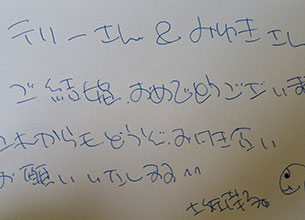 テリーさん & みゆきさん
ご結婚おめでとうございま
これからもどうぞお付き合い
お願いいたします^^